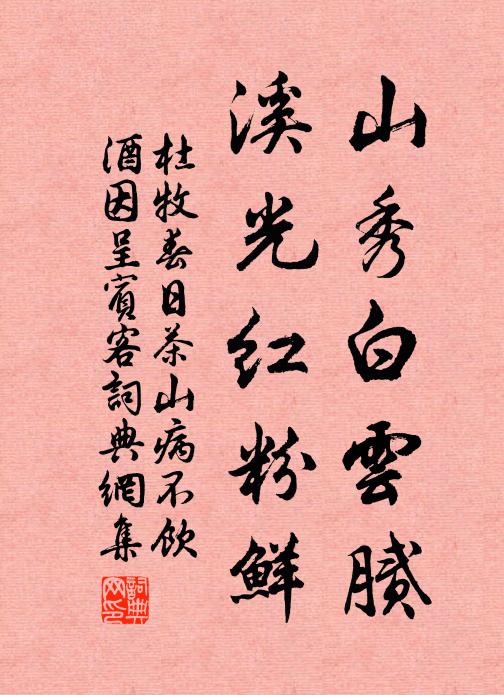 山秀白雲膩
溪光紅粉鮮
杜牧春日茶山病不飲
酒因呈賓客詞典網集
詞典
网印